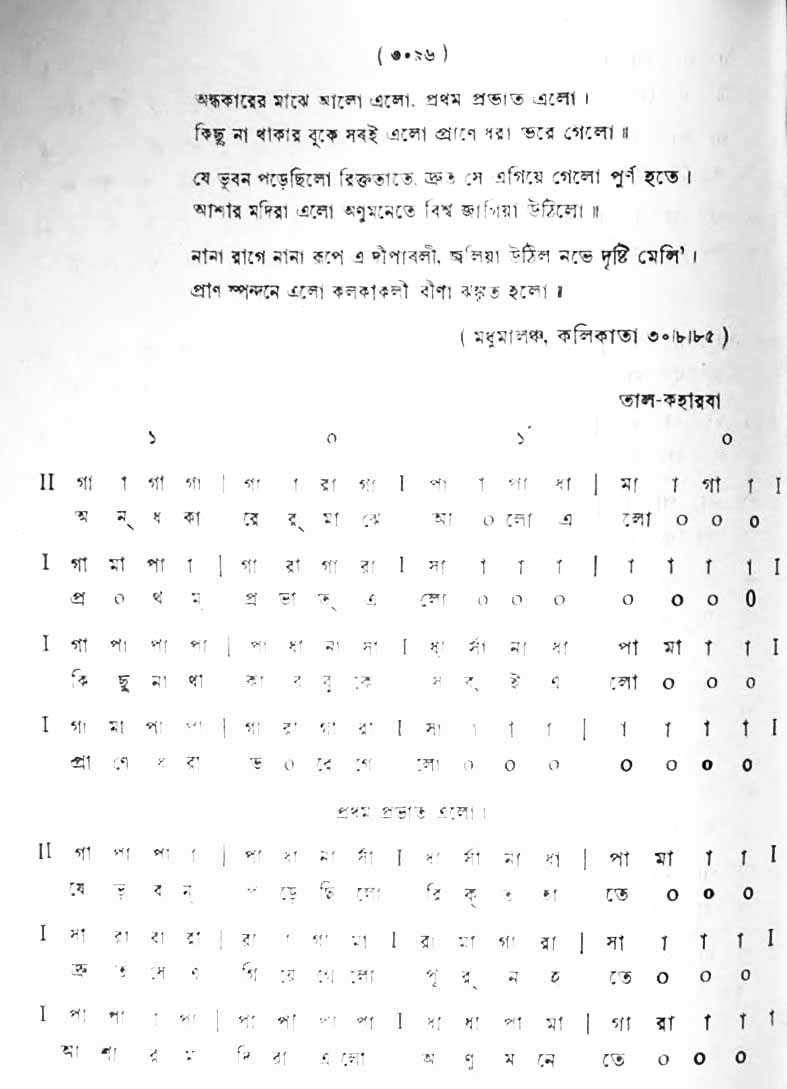 ( ৩০৯৬ )
অন্ধকারের মাঝে আলো এলো, প্রথম প্রভাত এলো ।
কিছু না থাকার বুকে সবই এলো প্রাণে ধরা ভরে গেলো ॥
যে ভুবন পড়েছিলো রিক্ততাতে, দ্রুত সে এগিয়ে গেলো পুর্ণ হতে ।
আশার মদিরা এলো অণুমনেতে বিশ্ব জাগিয়া উঠিলো ॥
নানা রাগে নানা রূপে এ দীপাবলী, জ্বলিয়া উঠিল নভে দৃষ্টি মেলি’ ।
প্রাণ স্পন্দনে এলো কলকাকলী বীণা ঝঙ্কৃত হলো ॥
( মধুমালঞ্চ, কলিকাতা ৩০।৮।৮৫ )
তাল-কহারবা
১ ০ ১´ ০
II গা া গা গা | গা া রা গা I পা া পা ধা | মা া গা া I
অ ন্ ধ কা রে র্ মা ঝে আ ০ লো এ লো ০ ০ ০
I গা মা পা া | গা রা গা রা I সা া া া | া া া া I
প্র ০ থ ম্ প্র ভা ত্ এ লো ০ ০ ০ ০ ০ ০ ০
I গা পা পা পা | পা ধা না সা I ধা র্সা না ধা পা মা া া I
কি ছু না থা কা র বু কে স ব্ ই এ লো ০ ০ ০
I গা মা পা পা | গা রা গা রা I সা া া া | া া া া I
প্রা ণে ধ রা ভ ০ রে গে লো ০ ০ ০ ০ ০ ০ ০
প্রথম প্রভাত এলো ।
II গা পা পা া | পা ধা না র্সা I ধা র্সা না ধা | পা মা া া I
যে ভু ব ন্ প ড়ে ছি লো রি ক্ ত তা তে ০ ০ ০
I সা রা রা রা | রা া গা মা I রা মা গা রা | সা া া া I
দ্রু ত সে এ গি য়ে গে লো পূ র্ ন হ তে ০ ০ ০
I পা পা া পা | পা পা পা পা I ধা ধা পা মা | গা রা া া I
আ শা র ম দি রা এ লো অ ণু ম নে তে ০ ০ ০